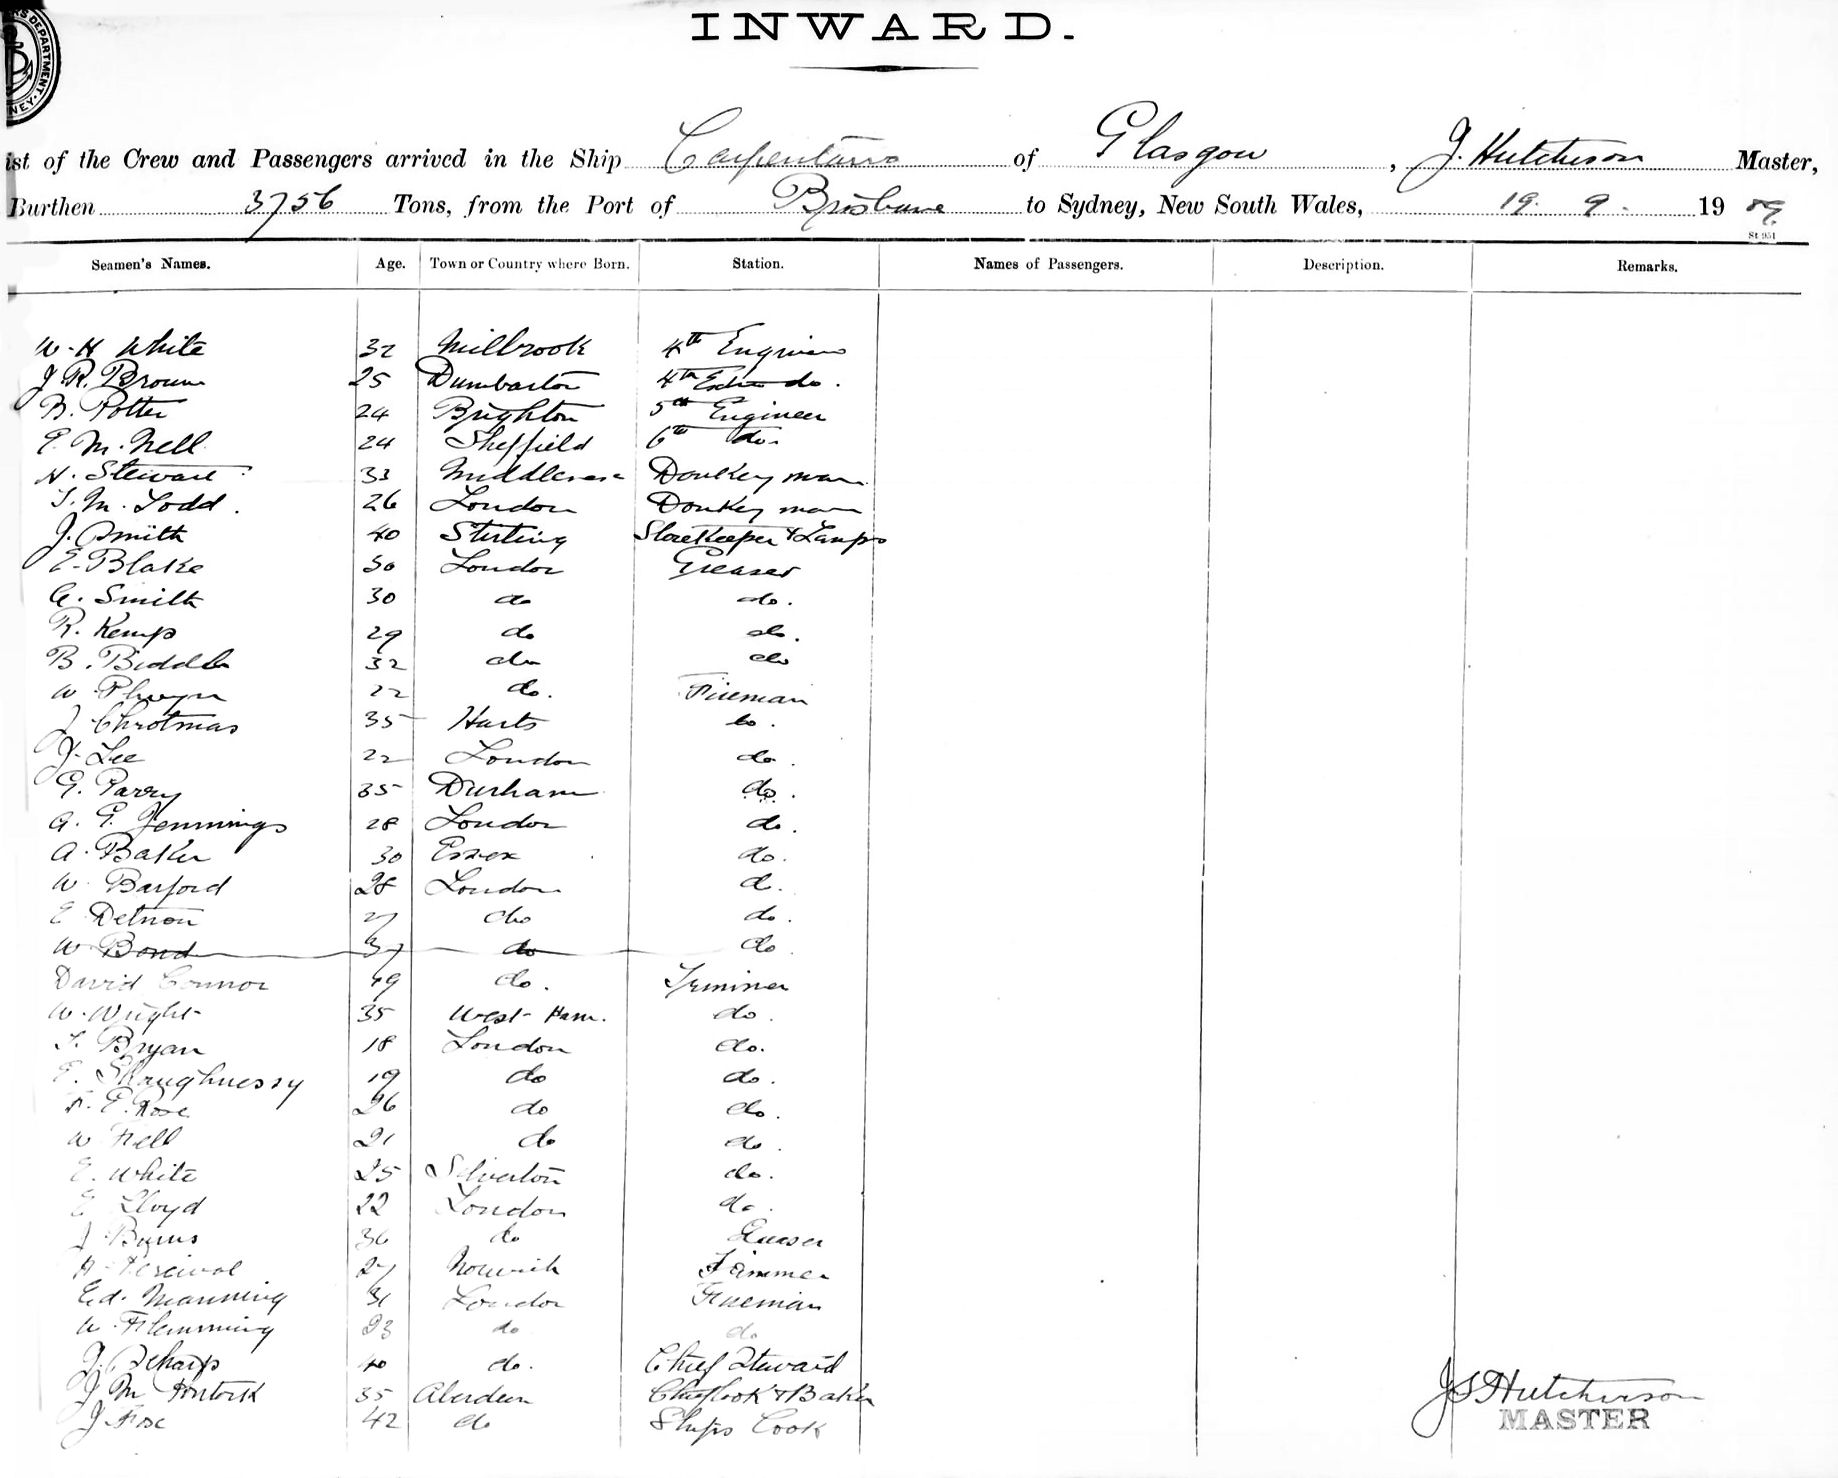 INWARD.
ist of the Crew and Passengers arrived in the Ship Carpentaria of Glasgow, J. Hutcheson Master,
Burthen 3756 Tons, from the Port of Brisbane to Sydney, New South Wales, 19. 9. 19 09
St 951
Seamen's Names. Age. Town or Country where Born. Station. Names of Passengers. Description. Remarks.
W. H White 32 Milbrook 4th Engineer
J. R. Brown 25 Dumbarton 4th Extra do.
B. Potter 24 Brighton 5th Engineer
E. M. Nell 24 Sheffield 6th do.
H. Stewart 33 Donkey man
T. M. Todd. 26 London Donkey man
J. Smith 40 Stirling Storekeeper & Lamps
E. Blake 30 London Greaser
G. Smith 30 do do.
R. Kemp 29 do do.
B. Biddle 32 do do
W. 22 do. Fireman
J Chrotmas 35 Harts do.
J. Lee 22 London do.
G. Parry 35 Durham do.
A. E. Jennings 28 London do.
A. Baker 30 Essex do.
W. Barford 28 London do.
E Detnon 27 do do.
W Bond 37 do do.
David Connor 49 do. Trimmer
W. Wright 35 West Ham. do.
T. Bryan 18 London do.
E. Shaughnessy 19 do do.
F. E. Rose 26 do do.
W Fell 21 do do.
E. White 25 Silverton do.
E Lloyd 22 London do.
J Burns 36 do Greaser
H Percival 27 Norwich Trimmer
Ed. Manning 31 London Fireman
W. Flemming 23 do do
J. Scharp 40 do. Chief Steward
J. M 35 Aberdeen Chief Cook & Baker
J. Rose 42 do Ships Cook
J S Hutcheson
MASTER